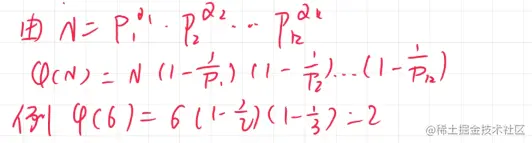 由 N = P₁^α₁ · P₂^α₂ ... P₁₂^αk
φ(N) = N (1 - 1/P₁) (1 - 1/P₂) ... (1 - 1/P₁₂)
例 φ(6) = 6 (1 - 1/2) (1 - 1/3) = 2
@稀土掘金技术社区